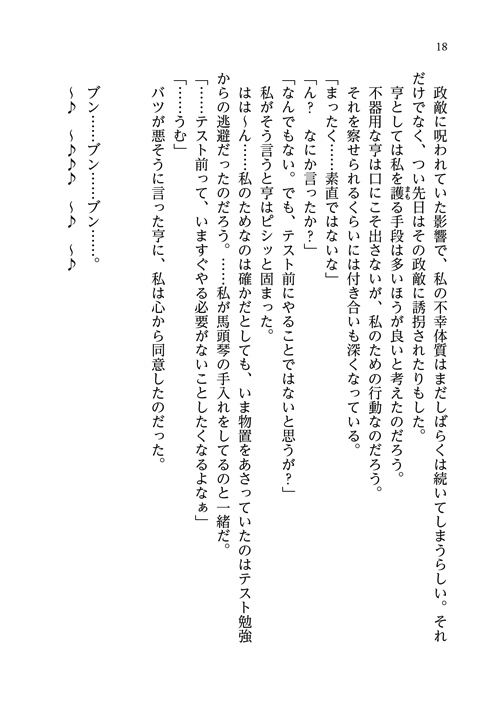 18
政敵に呪われていた影響で、私の不幸体質はまだしばらくは続いてしまうらしい。それ
だけでなく、つい先日はその政敵に誘拐されたりもした。
亨としては私を護る手段は多いほうが良いと考えたのだろう。
まも
不器用な亨は口にこそ出さないが、私のための行動なのだろう。
それを察せられるくらいには付き合いも深くなっている。
「まったく……素直ではないな」
「ん？　なにか言ったか？」
「なんでもない。でも、テスト前にやることではないと思うが？」
私がそう言うと亨はピシッと固まった。
はは〜ん……私のためなのは確かだとしても、いま物置をあさっていたのはテスト勉強
からの逃避だったのだろう。……私が馬頭琴の手入れをしてるのと一緒だ。
「……テスト前って、いますぐやる必要がないことしたくなるよなぁ」
「……うむ」
バツが悪そうに言った亨に、私は心から同意したのだった。
ブン……ブン……ブン……。
〜♪　〜♪♪♪　〜♪　〜♪